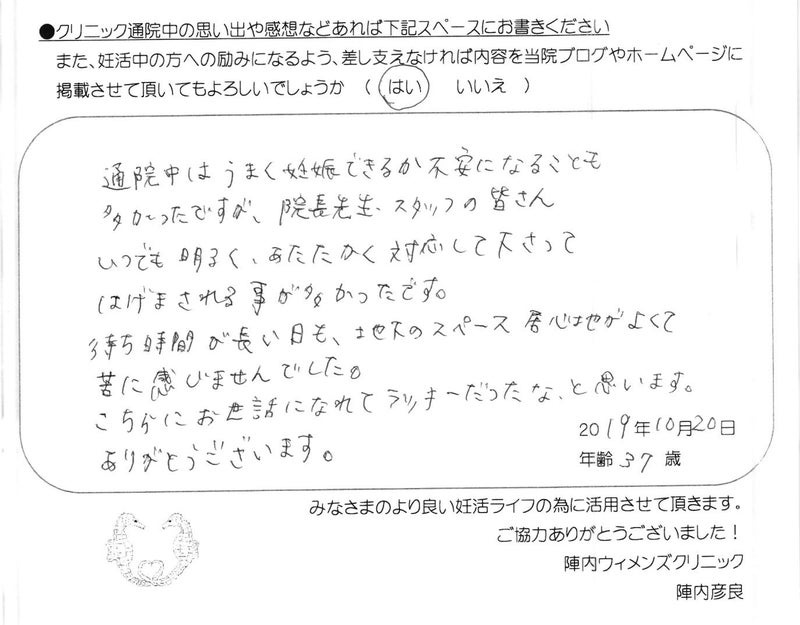 ●クリニック通院中の思い出や感想などあれば下記スペースにお書きください
また、妊活中の方への励みになるよう、差し支えなければ内容を当院ブログやホームページに
掲載させて頂いてもよろしいでしょうか （ はい いいえ ）
通院中はうまく妊娠できるか不安になることも
多かったですが、院長先生、スタッフの皆さん
いつでも明るく、あたたかく対応して下さって
はげまされる事が多かったです。
待ち時間が長い日も、地下のスペース居心地がよくて
苦に感じませんでした。
こちらにお世話になれてラッキーだったな、と思います。
ありがとうございます。
2019年10月20日
年齢 37 歳
みなさまのより良い妊活ライフの為に活用させて頂きます。
ご協力ありがとうございました！
陣内ウィメンズクリニック
陣内彦良